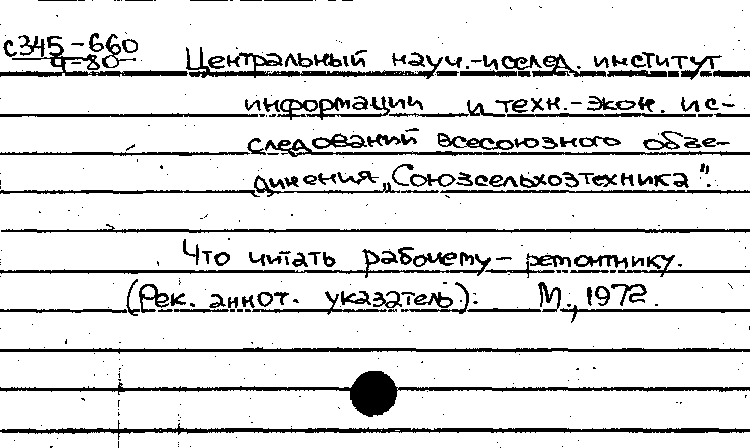 с345-660
4-80
Центральный науч.-исслед. институт
информации и техн.-экон. ис-
следований всесоюзного объе-
динения „Союзсельхозтехника".
Что читать рабочему-ремонтнику.
(Рек. аннот. указатель). М., 1972.